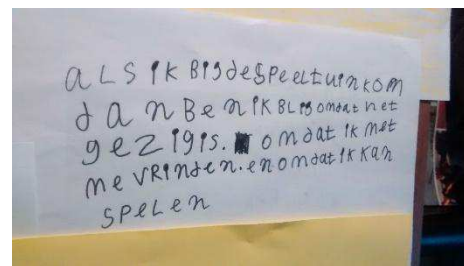 aLS iK Bij de SPeeLtuin KOm
danBenikBLijomdat het
gezigis. omdat ik met
me VRinden. en omdat ik Kan
SPeLen